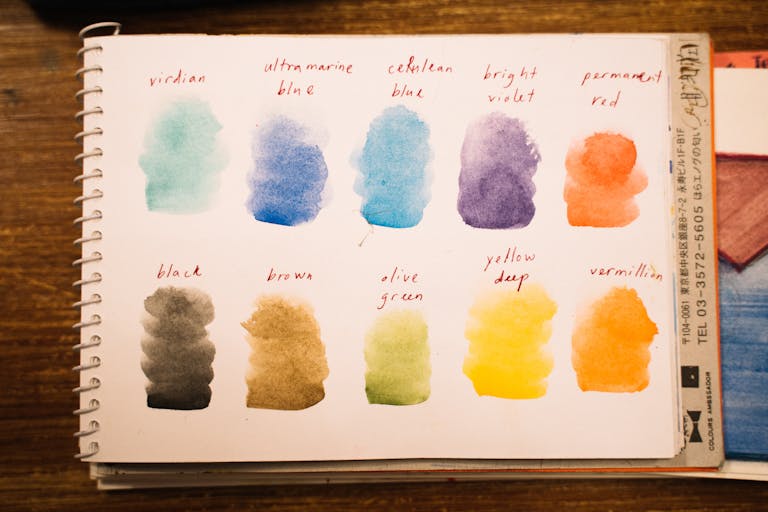 virdian
ultramarine
blue
cerulean
blue
bright
violet
permanent
red
black
brown
olive
green
yellow
deep
vermillion
〒104-0061 東京都中央区銀座8-7-2 永寿ビル1F・B1F
TEL 03-3572-5605
COLOURS AMBSSADOR